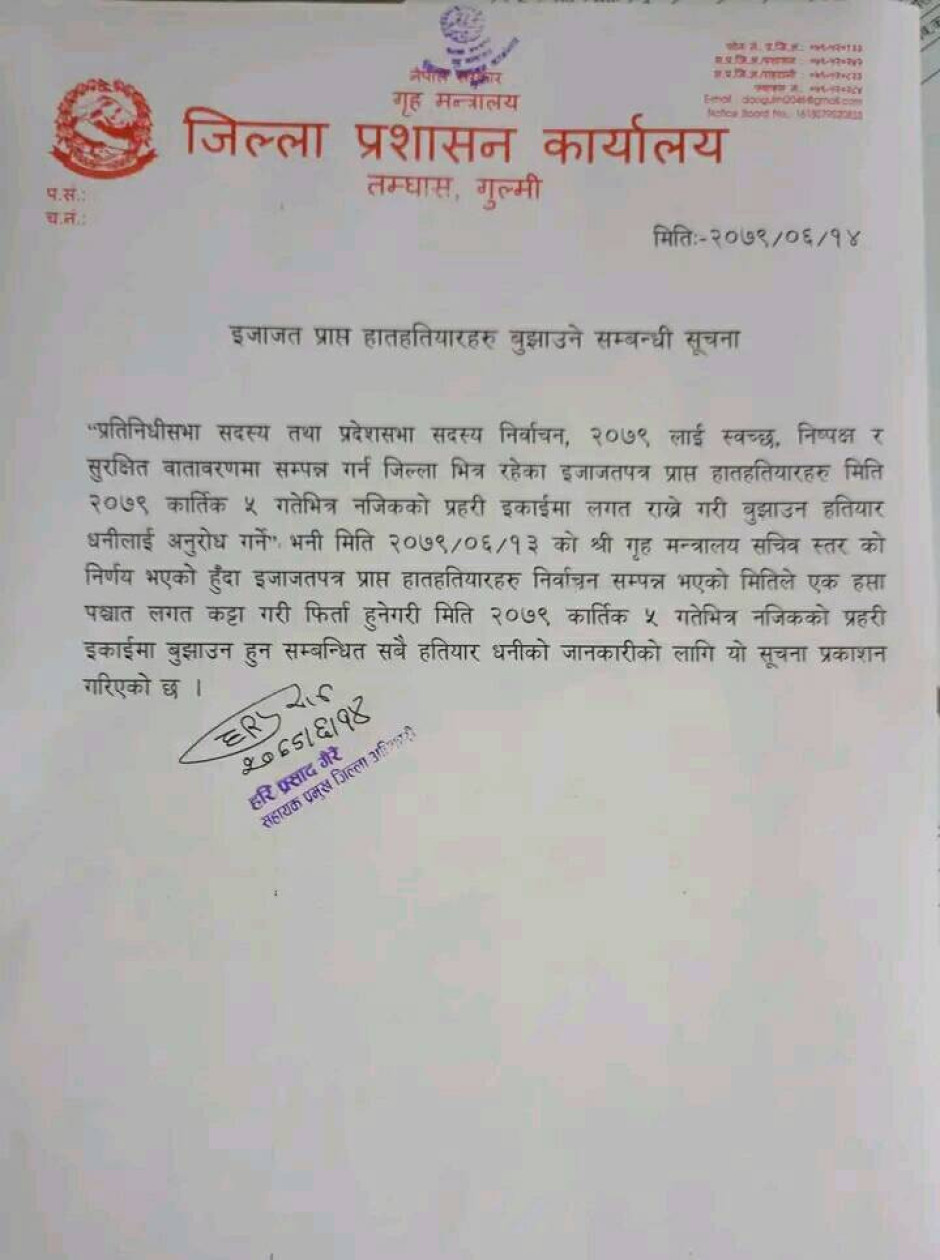 नेपाल सरकार
गृह मन्त्रालय
जिल्ला प्रशासन कार्यालय
तम्घास, गुल्मी
प.सं.:
च.नं.:
मितिः-२०७९/०६/१४
इजाजत प्राप्त हातहतियारहरु बुझाउने सम्बन्धी सूचना
“प्रतिनिधीसभा सदस्य तथा प्रदेशसभा सदस्य निर्वाचन, २०७९ लाई स्वच्छ, निष्पक्ष र
सुरक्षित वातावरणमा सम्पन्न गर्न जिल्ला भित्र रहेका इजाजतपत्र प्राप्त हातहतियारहरु मिति
२०७९ कार्तिक ५ गतेभित्र नजिकको प्रहरी इकाईमा लगत राख्ने गरी बुझाउन हतियार
धनीलाई अनुरोध गर्ने” भनी मिति २०७९/०६/१३ को श्री गृह मन्त्रालय सचिव स्तर को
निर्णय भएको हुँदा इजाजतपत्र प्राप्त हातहतियारहरु निर्वाचन सम्पन्न भएको मितिले एक हप्ता
पश्चात लगत कट्टा गरी फिर्ता हुनेगरी मिति २०७९ कार्तिक ५ गतेभित्र नजिकको प्रहरी
इकाईमा बुझाउन हुन सम्बन्धित सबै हतियार धनीको जानकारीको लागि यो सूचना प्रकाशन
गरिएको छ ।
हरि प्रसाद गैरे
सहायक प्रमुख जिल्ला अधिकारी